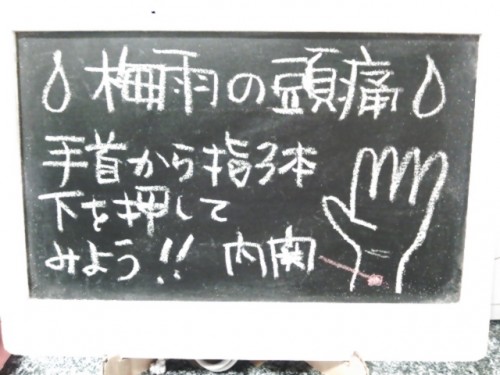 梅雨の頭痛
手首から指3本
下を押して
みよう!! 内関